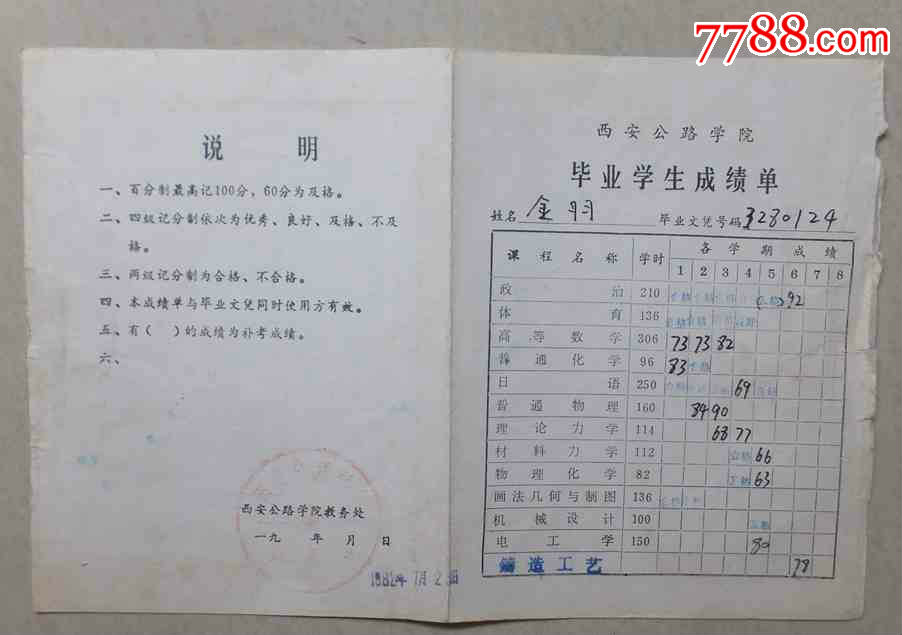 7788.com
说 明
一、百分制最高记100分，60分为及格。
二、四级记分制依次为优秀、良好、及格、不及
格。
三、两级记分制为合格、不合格。
四、本成绩单与毕业文凭同时使用方有效。
五、有（ ）的成绩为补考成绩。
六、
西安公路学院教务处
一九 年 月 日
西安公路学院
毕业学生成绩单
姓名 金玥 毕业文凭号码 3280124
课程名称 学时 各学期成绩
1 2 3 4 5 6 7 8
政治 210 92
体育 136
高等数学 306 73 73 82
普通化学 96 83
日语 250 69
普通物理 160 84 90
理论力学 114 68 77
材料力学 112 合格 66
物理化学 82 63
画法几何与制图 136
机械设计 100
电工学 150 80
铸造工艺 78